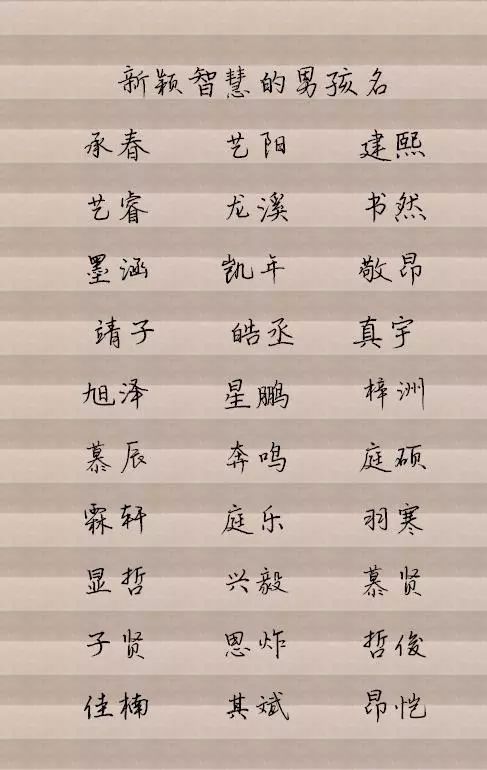 新颖智慧的男孩名
承春 艺阳 建熙
艺睿 龙溪 书然
墨涵 凯年 敬昂
靖子 皓丞 真宇
旭泽 星鹏 梓洲
慕辰 奔鸣 庭硕
霖轩 庭乐 羽寒
显哲 兴毅 慕贤
子贤 恩炸 哲俊
佳楠 其斌 昂恺